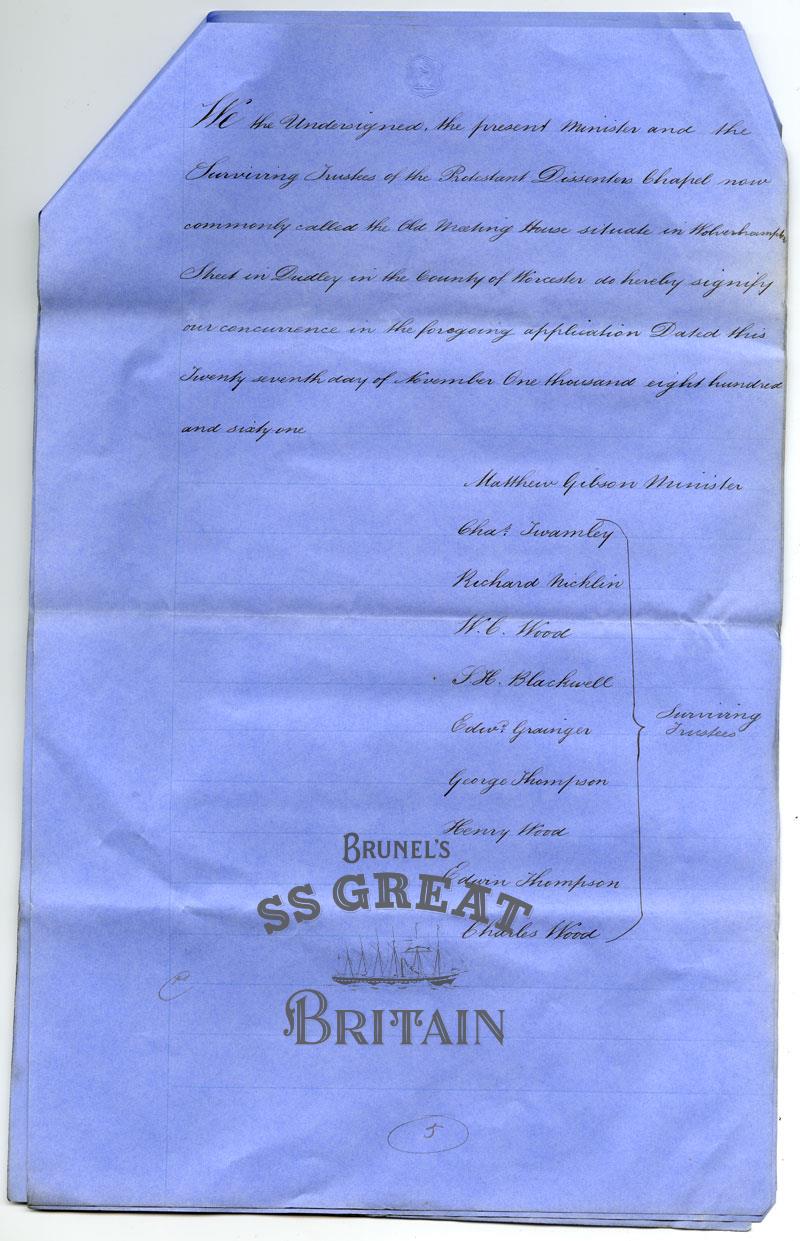 We the Undersigned, the present Minister and the
Surviving Trustees of the Protestant Dissenters Chapel now
commonly called the Old Meeting House situate in Wolverhampton
Street in Dudley in the County of Worcester do hereby signify
our concurrence in the foregoing application Dated this
Twenty seventh day of November One thousand eight hundred
and sixty one
Matthew Gibson Minister
Chas. Twamley
Richard Nicklin
W. C. Wood
S. H. Blackwell
Edwd. Grainger
George Thompson
Henry Wood
Edwin Thompson
Charles Wood
Surviving
Trustees
BRUNEL'S
SS GREAT
BRITAIN
5